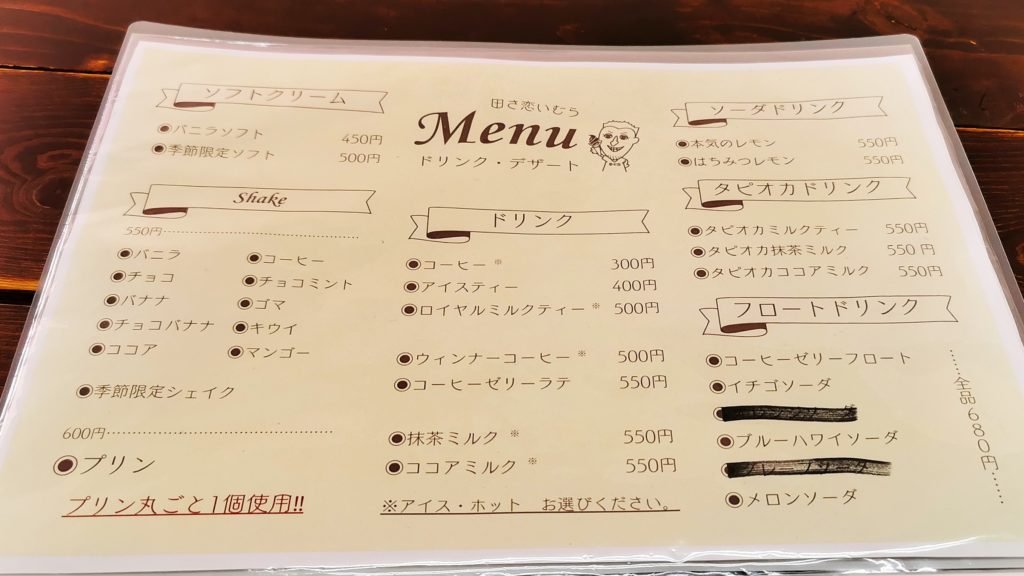 田さ恋いむら
Menu
ドリンク・デザート
ソフトクリーム
◉バニラソフト 450円
◉季節限定ソフト 500円
Shake
550円
◉バニラ
◉チョコ
◉バナナ
◉チョコバナナ
◉ココア
◉コーヒー
◉チョコミント
◉ゴマ
◉キウイ
◉マンゴー
◉季節限定シェイク
600円
◉プリン
プリン丸ごと1個使用!!
ドリンク
◉コーヒー ※ 300円
◉アイスティー 400円
◉ロイヤルミルクティー ※ 500円
◉ウィンナーコーヒー ※ 500円
◉コーヒーゼリーラテ 550円
◉抹茶ミルク ※ 550円
◉ココアミルク ※ 550円
※アイス・ホット お選びください。
ソーダドリンク
◉本気のレモン 550円
◉はちみつレモン 550円
タピオカドリンク
◉タピオカミルクティー 550円
◉タピオカ抹茶ミルク 550円
◉タピオカココアミルク 550円
フロートドリンク
◉コーヒーゼリーフロート
◉イチゴソーダ
◉ブルーハワイソーダ
◉メロンソーダ
……全品680円……